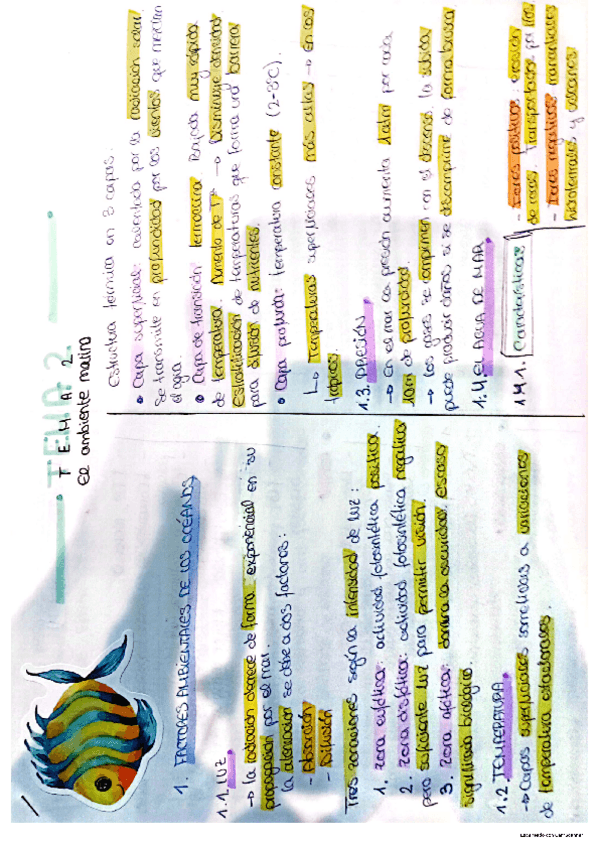 TEMA 2.
TEMA 2
El ambiente marino
1. FACTORES AMBIENTALES DE LOS OCÉANOS
1.1. LUZ
→ La radiación decrece de forma exponencial en su
propagación por el mar.
La atenuación se debe a dos factores:
- Absorción
- Difusión
Tres zonaciones según la intensidad de luz:
1. Zona eufótica: actividad fotosintética positiva.
2. Zona disfótica: actividad fotosintética negativa
pero suficiente luz para permitir visión.
3. Zona afótica: domina la oscuridad, escaso
significado biológico.
1.2 TEMPERATURA
→ Capas superficiales sometidas a variaciones
de temperatura estacionales.
Estructura térmica en 3 capas:
• Capa superficial: calentada por la radiación solar.
Se transmite en profundidad por los vientos que mezclan
el agua.
• Capa de transición: termoclina. Bajada muy rápida
de temperatura. Aumento de Tª → Disminuye densidad
Estratificación de temperaturas que forma una barrera
para difusión de nutrientes.
• Capa profunda: temperatura constante (2-3ºC).
↳ Temperaturas superficiales más altas → En los
trópicos.
1.3. PRESIÓN
→ En el mar la presión aumenta 1 atm por cada
10m de profundidad.
→ Los gases se comprimen con el descenso. La subida
puede producir daños si se descomprime de forma brusca
1.4 EL AGUA DE MAR
1.4.1. Características
- Iones positivos: erosión
de rocas. Transportados por ríos
- Iones negativos: manantiales
hidrotermales y volcanes
Escaneado con CamScanner